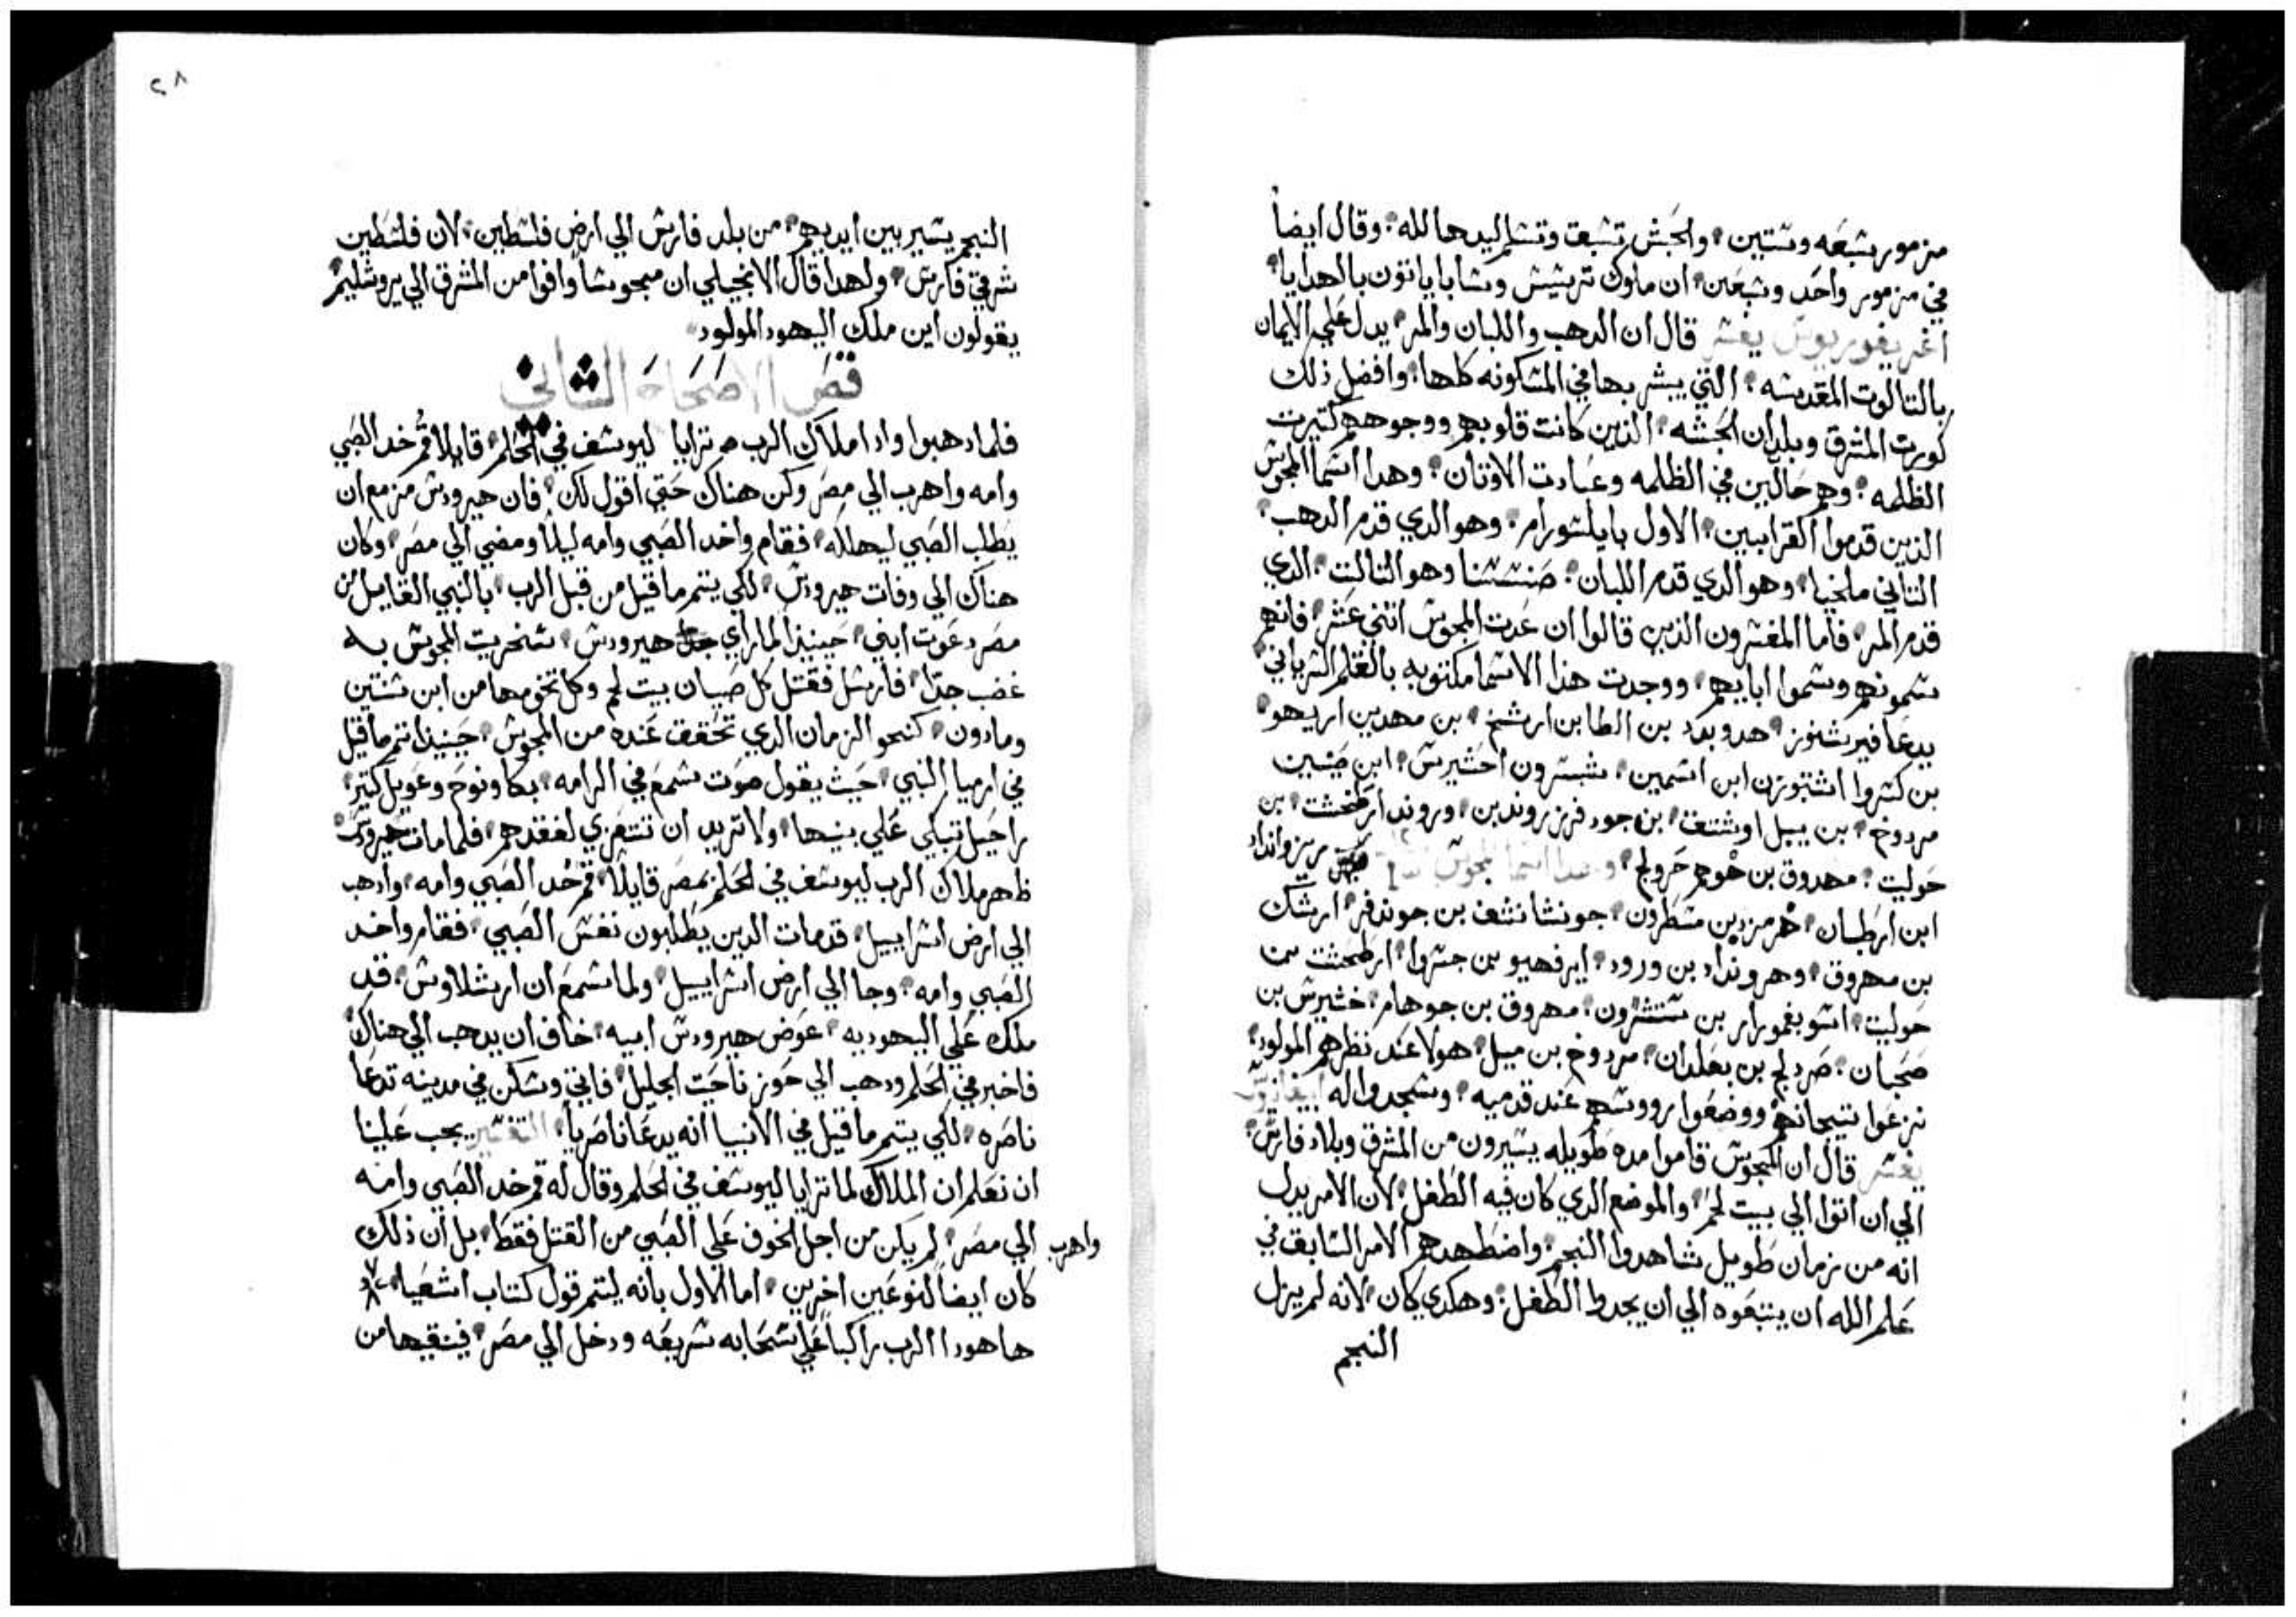 مزمور سبعه وستين والحبش تسبق وتسلم ليدها لله وقال ايضاً
في مزمور واحد وسبعين ان ملوك ترسيس وسابا ياتون بالهدايا
اغريغوريوس يفسر قال ان الدهب واللبان والمر يدل علي الايمان
بالتالوت المقدسه التي يبشر بها في المسكونه كلها وافضل ذلك
كورت المشرق وبلدان الحبشه الذين كانت قلوبهم ووجوههم كتيرت
الظلمه وهم حالين في الظلمه وعبادت الاوتان وهدا اسما المجوس
الذين قدموا القرابين الاول بايلشورام وهو الدي قدم الدهب
التاني ملخيا وهو الدي قدم اللبان وهو التالت الدي
قدم المر فاما المفسرون الذين قالوا ان عدت المجوس اتني عشر فانهم
سموئهم وسموا ابايهم ووجدت هذا الاسما مكتوبه بالقلم السرياني
يدعا هدوبدد بن الطا بن ارشخ بن مهدين اريهو
بن كسروا ابن اسمين احشيرش ابن
مردوخ بن بيبل بن جودفرز روندبن وروند ارطحشت بن
حوليت مهدوق بن حوهم حرولج وهدا اسما المجوس
ابن ارطبان هرمزد بن مسطرون بن جوندفر ارشك
بن مهروق وهرونداد بن ورود ايرفهيو بن حسروا ارطحشت بن
حوليت بن مهروق بن جوهام خشيرش بن
صحبان صردلج بن بعلدان مردوخ بن ميبل هولا عند نظرهم المولود
نزعوا تيجانهم ووضعوا رووسهم عند قدميه وسجدوا له
يفسر قال ان المجوس قاموا مده طويله يسيرون من المشرق وبلاد فارس
الي ان اتوا الي بيت لحم والموضع الدي كان فيه الطفل لان الامر يدل
انه من زمان طويل شاهدوا النجم واضطهدهم الامر السابق في
علم الله ان يتبعوه الي ان يجدوا الطفل وهكدي كان لانه لم يزل
النجم
٢٨
النجم يسير بين ايديهم من بلد فارس الي ارض فلسطين لان فلسطين
شرقي فارس ولهدا قال الانجيلي ان مجوساً وافوا من المشرق الي يروشليم
يقولون اين ملك اليهود المولود
فص الاصحاح الثاني
فلما دهبوا وادا ملاك الرب ترايا ليوسف في الحلم قايلا قم خد الصبي
وامه واهرب الي مصر وكن هناك حتي اقول لك فان هيرودس مزمع ان
يطلب الصبي ليهلكه فقام واخد الصبي وامه ليلاً ومضي الي مصر وكان
هناك الي وفات هيرودس لكي يتم ما قيل من قبل الرب بالنبي القايل من
مصر دعوت ابني حينيذ لما راي هيرودس سخريت المجوس به
غضب جداً فارسل فقتل كل صبيان بيت لحم وكل تخومها من ابن سنتين
ومادون كنحو الزمان الدي تحقق عنده من المجوس حينيذ تم ما قيل
في ارميا النبي حيث يقول صوت سمع في الرامه بكا ونوح وعويل كتير
راحيل تبكي علي بنيها ولا تريد ان تتعزي لفقدهم فلما مات هيرودس
ظهر ملاك الرب ليوسف في الحلم بمصر قايلاً قم خد الصبي وامه وادهب
الي ارض اسراييل قد مات الدين يطلبون نفس الصبي فقام واخد
الصبي وامه وجا الي ارض اسراييل ولما سمع ان ارشلاوس قد
ملك علي اليهوديه عوض هيرودس ابيه خاف ان يدهب الي هناك
فاخبر في الحلم ودهب الي حوز ناحيت الجليل فاتي وسكن في مدينه تدعا
ناصره لكي يتم ما قيل في الانبيا انه يدعا ناصرياً التفسير يجب علينا
ان نعلم ان الملاك لما ترايا ليوسف في الحلم وقال له قم خد الصبي وامه
واهرب الي مصر لم يكن من اجل الخوف علي الصبي من القتل فقط بل ان ذلك
كان ايضاً لنوعين اخرين اما الاول بانه ليتم قول كتاب اشعيا
ها هودا الرب راكباً علي سحابه سريعه ودخل الي مصر فينقيها من